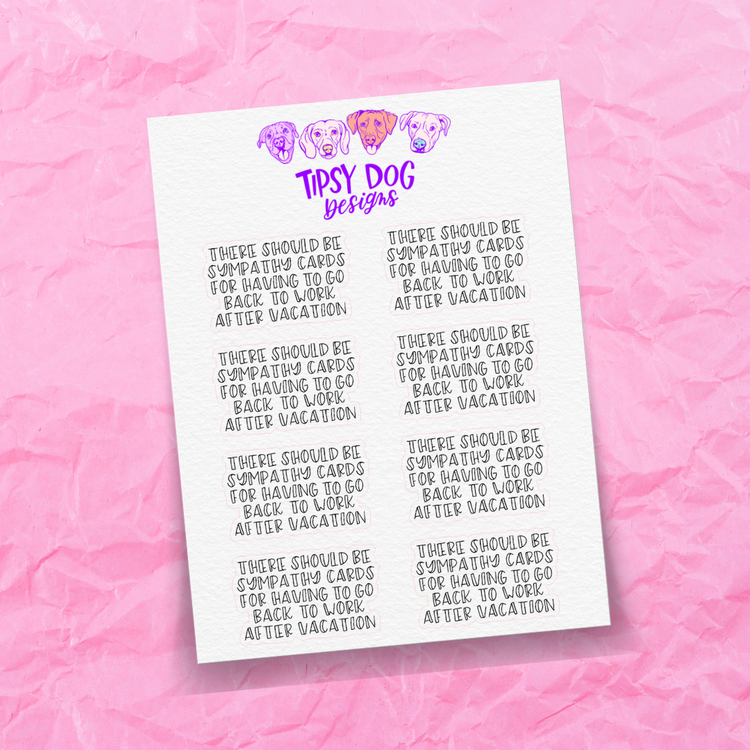 TIPSY DOG
Designs
THERE SHOULD BE
SYMPATHY CARDS
FOR HAVING TO GO
BACK TO WORK
AFTER VACATION
THERE SHOULD BE
SYMPATHY CARDS
FOR HAVING TO GO
BACK TO WORK
AFTER VACATION
THERE SHOULD BE
SYMPATHY CARDS
FOR HAVING TO GO
BACK TO WORK
AFTER VACATION
THERE SHOULD BE
SYMPATHY CARDS
FOR HAVING TO GO
BACK TO WORK
AFTER VACATION
THERE SHOULD BE
SYMPATHY CARDS
FOR HAVING TO GO
BACK TO WORK
AFTER VACATION
THERE SHOULD BE
SYMPATHY CARDS
FOR HAVING TO GO
BACK TO WORK
AFTER VACATION
THERE SHOULD BE
SYMPATHY CARDS
FOR HAVING TO GO
BACK TO WORK
AFTER VACATION
THERE SHOULD BE
SYMPATHY CARDS
FOR HAVING TO GO
BACK TO WORK
AFTER VACATION